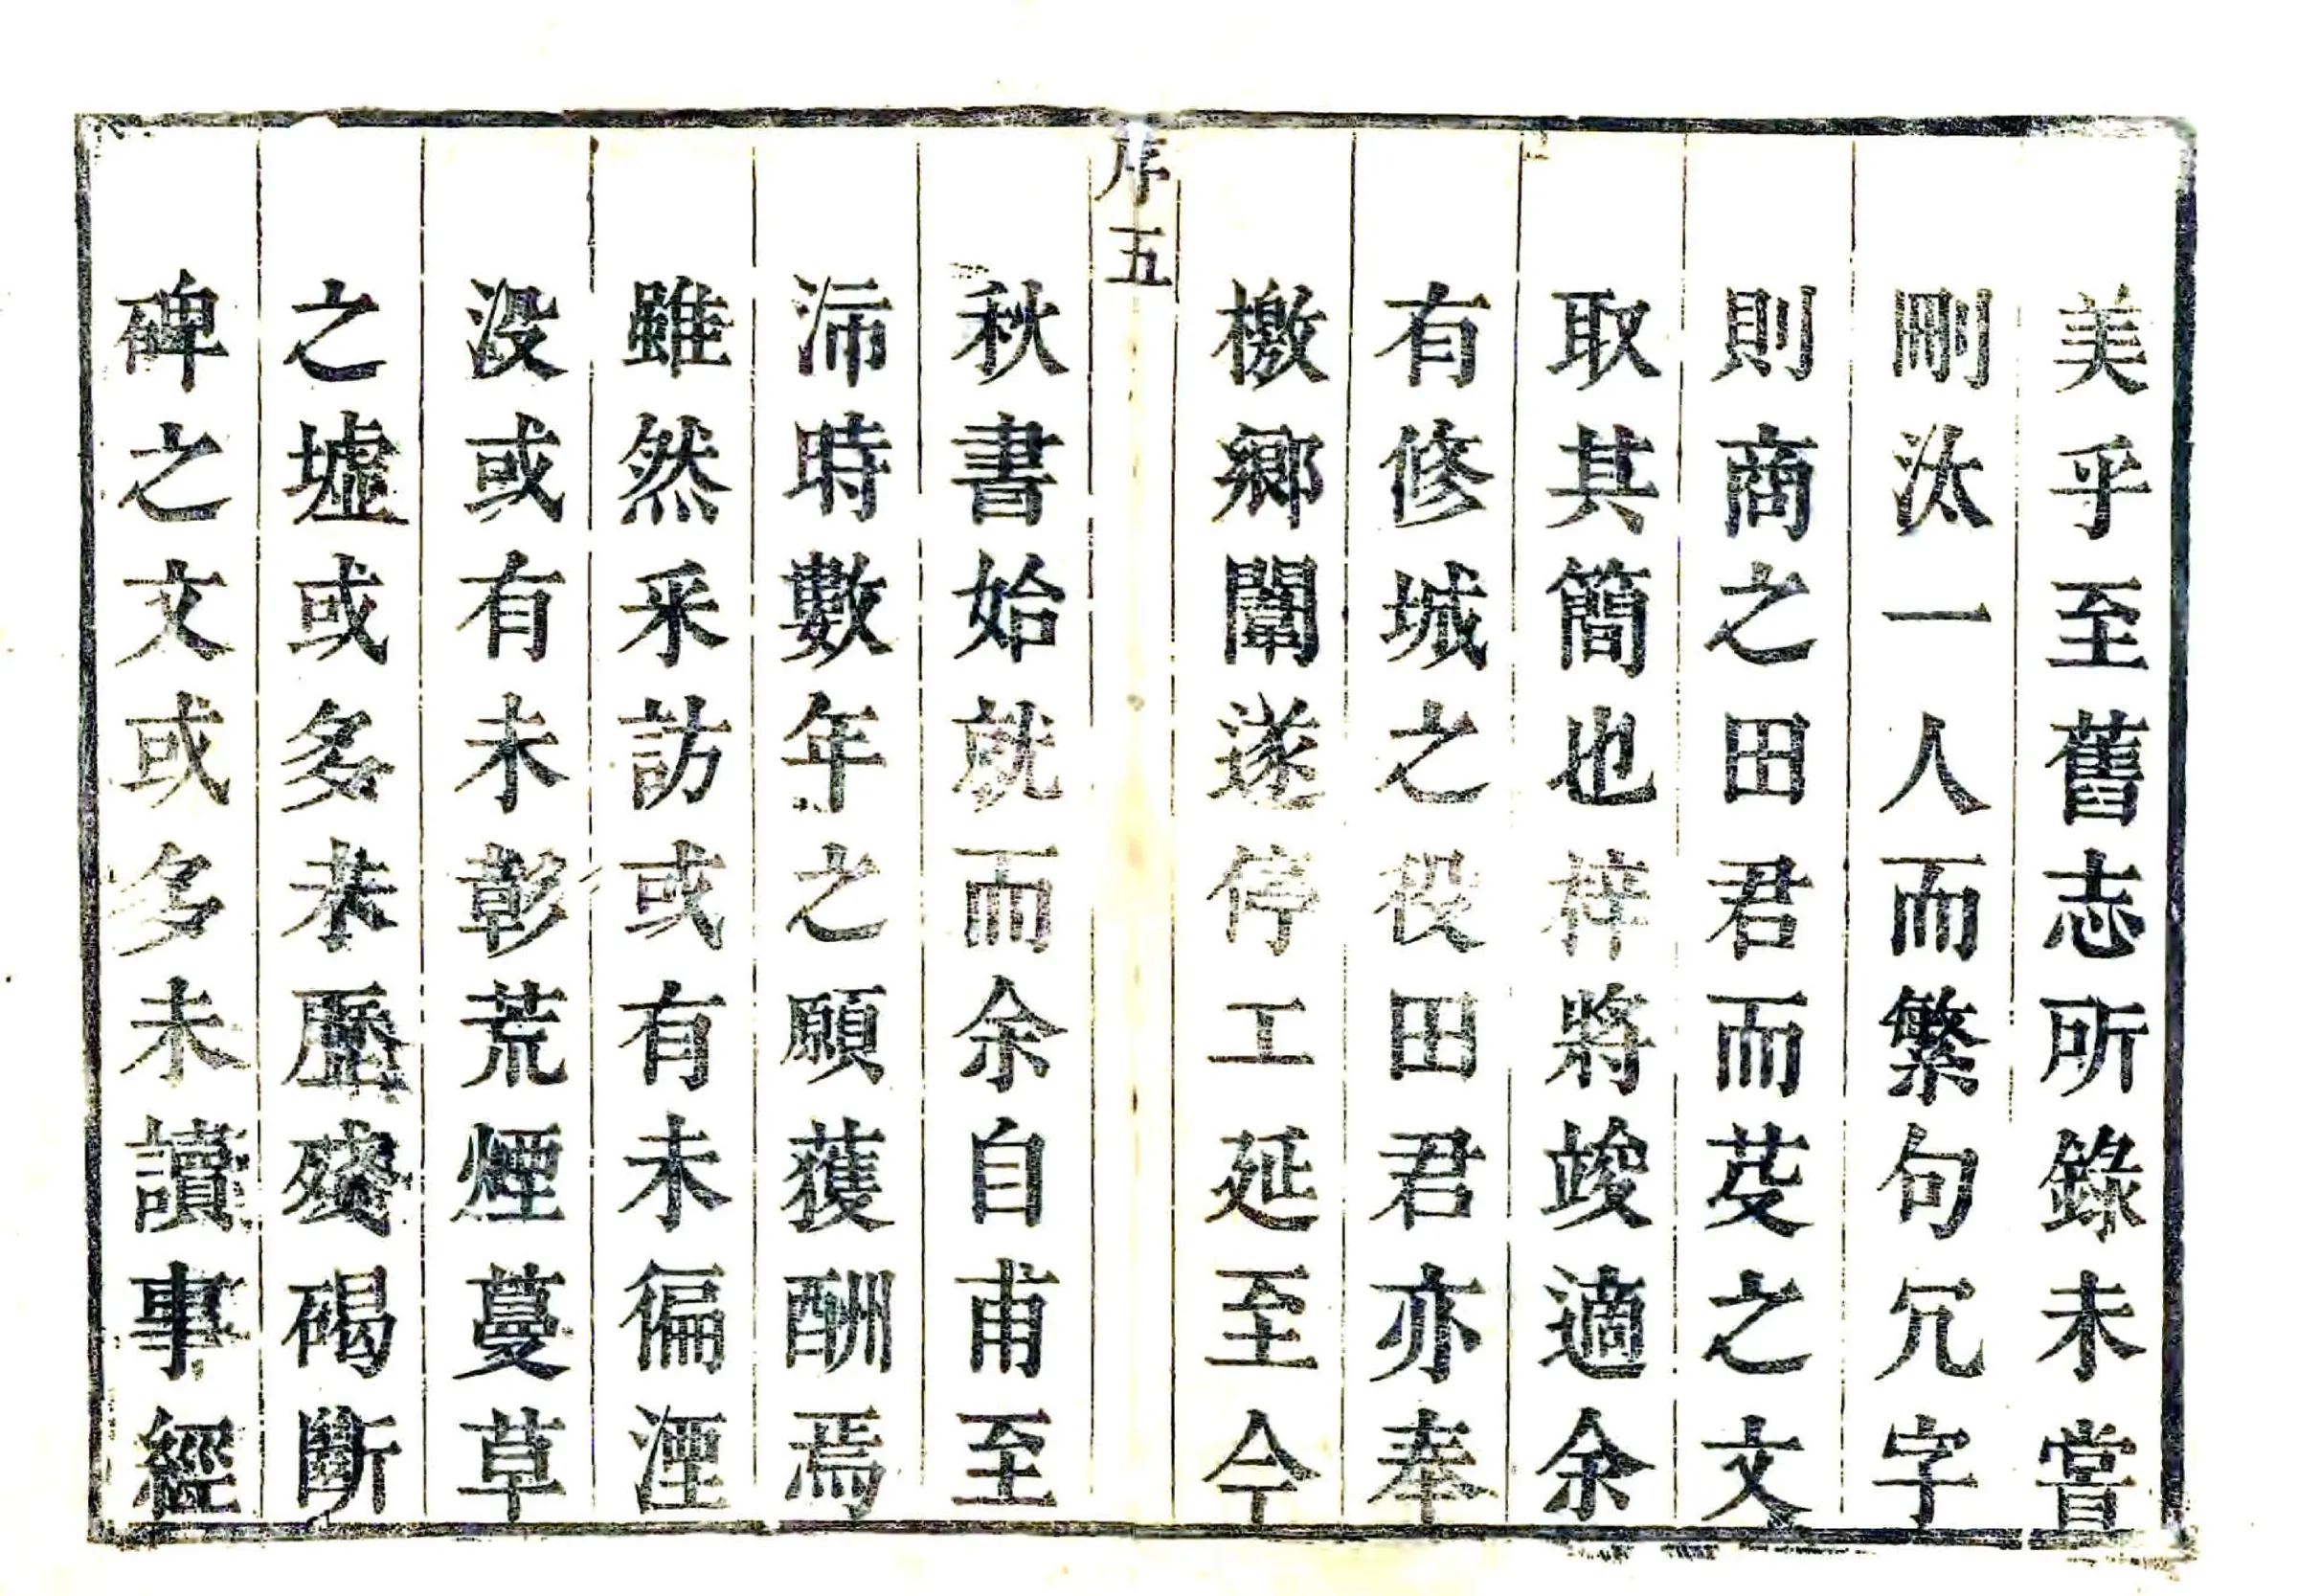 美乎至舊志所錄未嘗
刪汰一人而繁句冗字
則商之田君而芟之文
取其簡也梓將竣適余
有修城之役田君亦奉
檄鄉闈遂停工延至今
序五
秋書始就而余自甫至
沛時數年之願獲酬焉
雖然采訪或有未徧湮
沒或有未彰荒煙蔓草
之墟或多未歷殘碣斷
碑之文或多未讀事經